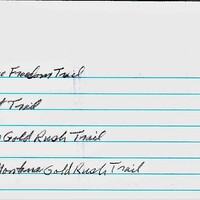 Freedom Trail
Trail
Gold Rush Trail
Montana Gold Rush Trail